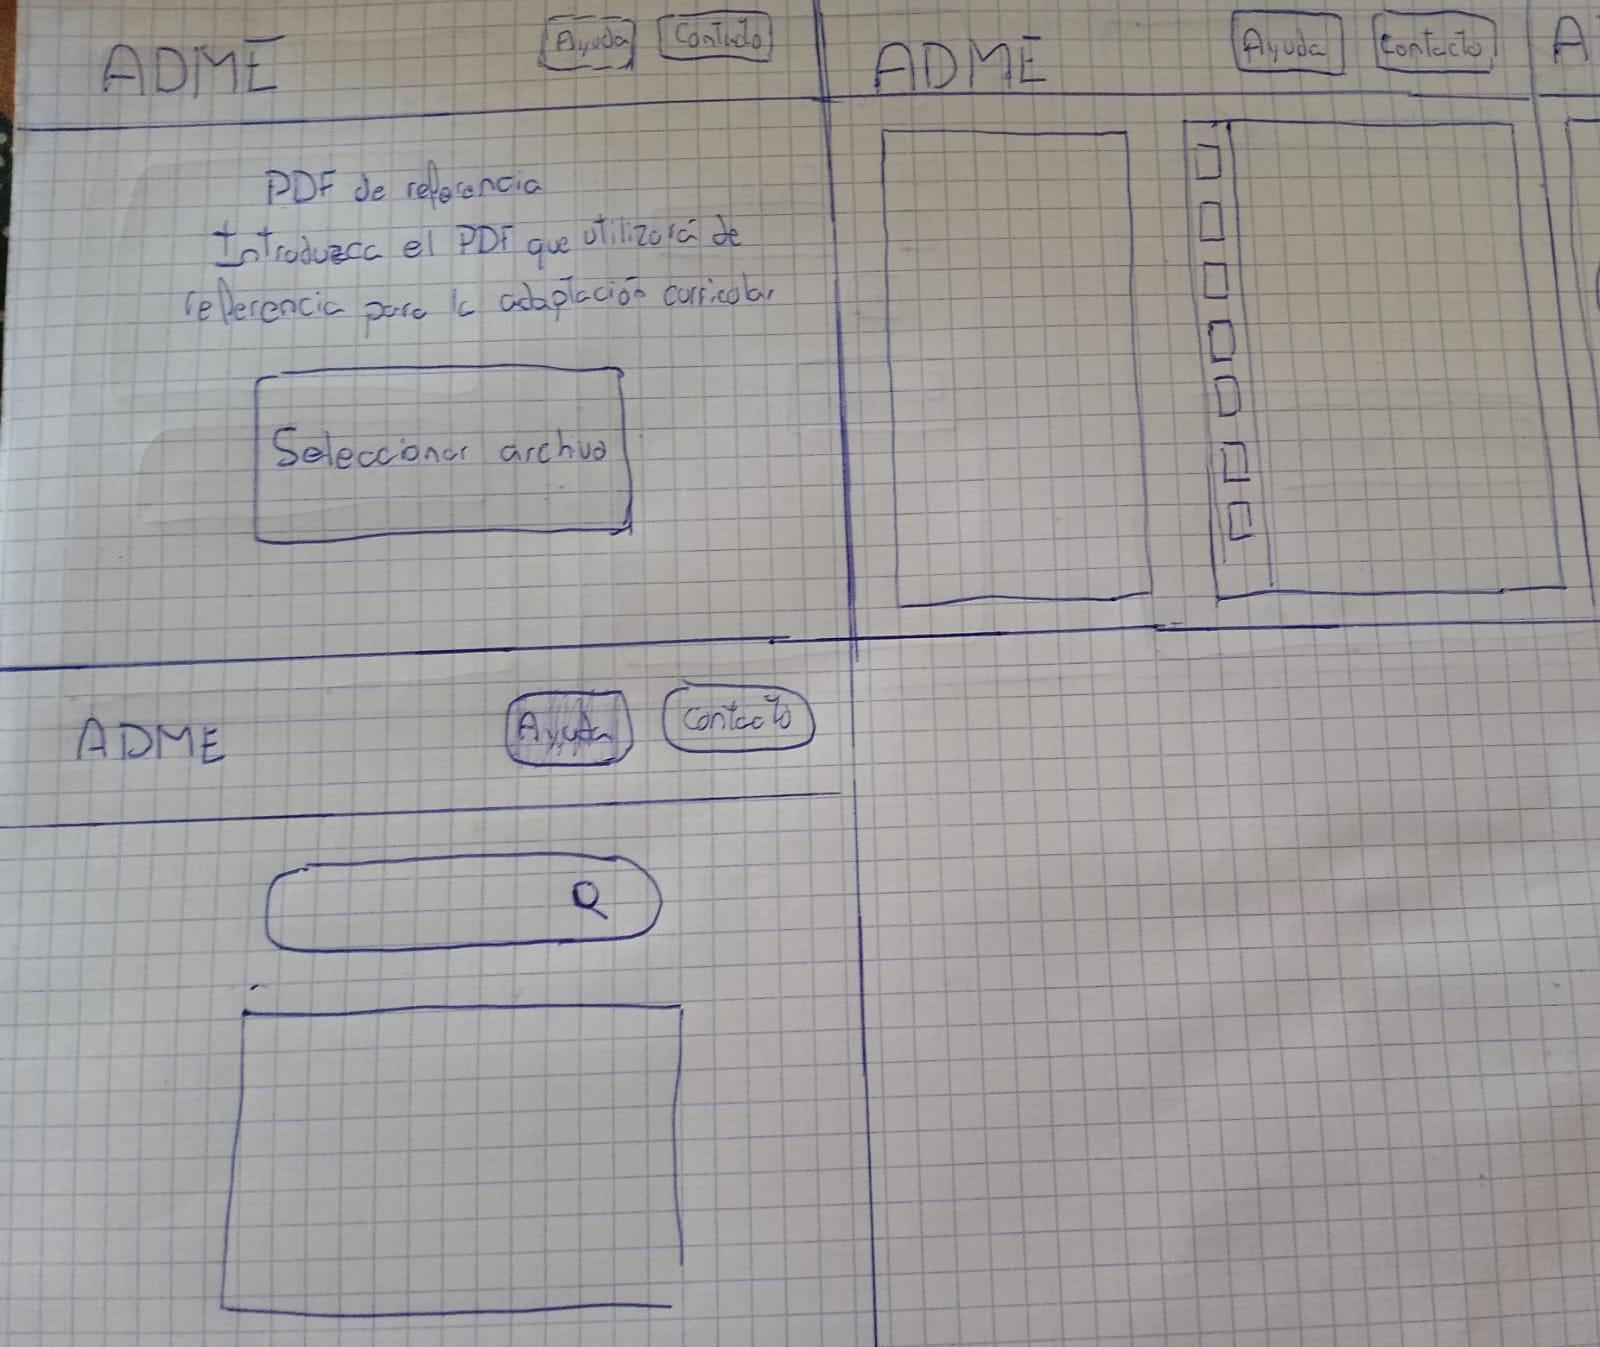 ADME
Ayuda
Contacto
PDF de referencia
Introduzca el PDF que utilizará de
referencia para la adaptación curricolar
Seleccionar archivo
ADME
Ayuda
Contacto
A
ADME
Ayuda
Contacto